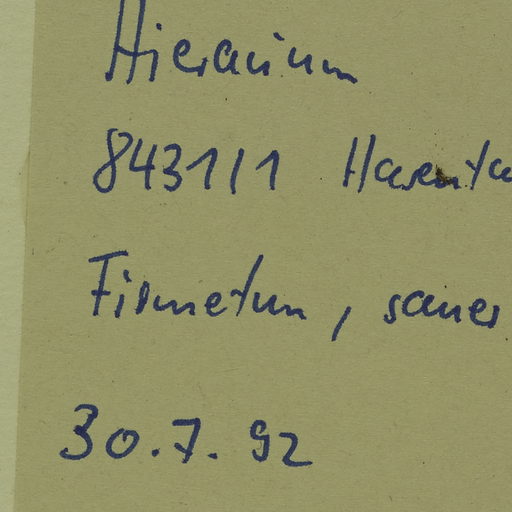 Hieracium
8431/1 Hasenta
Firmetum, sauer
30.7.92